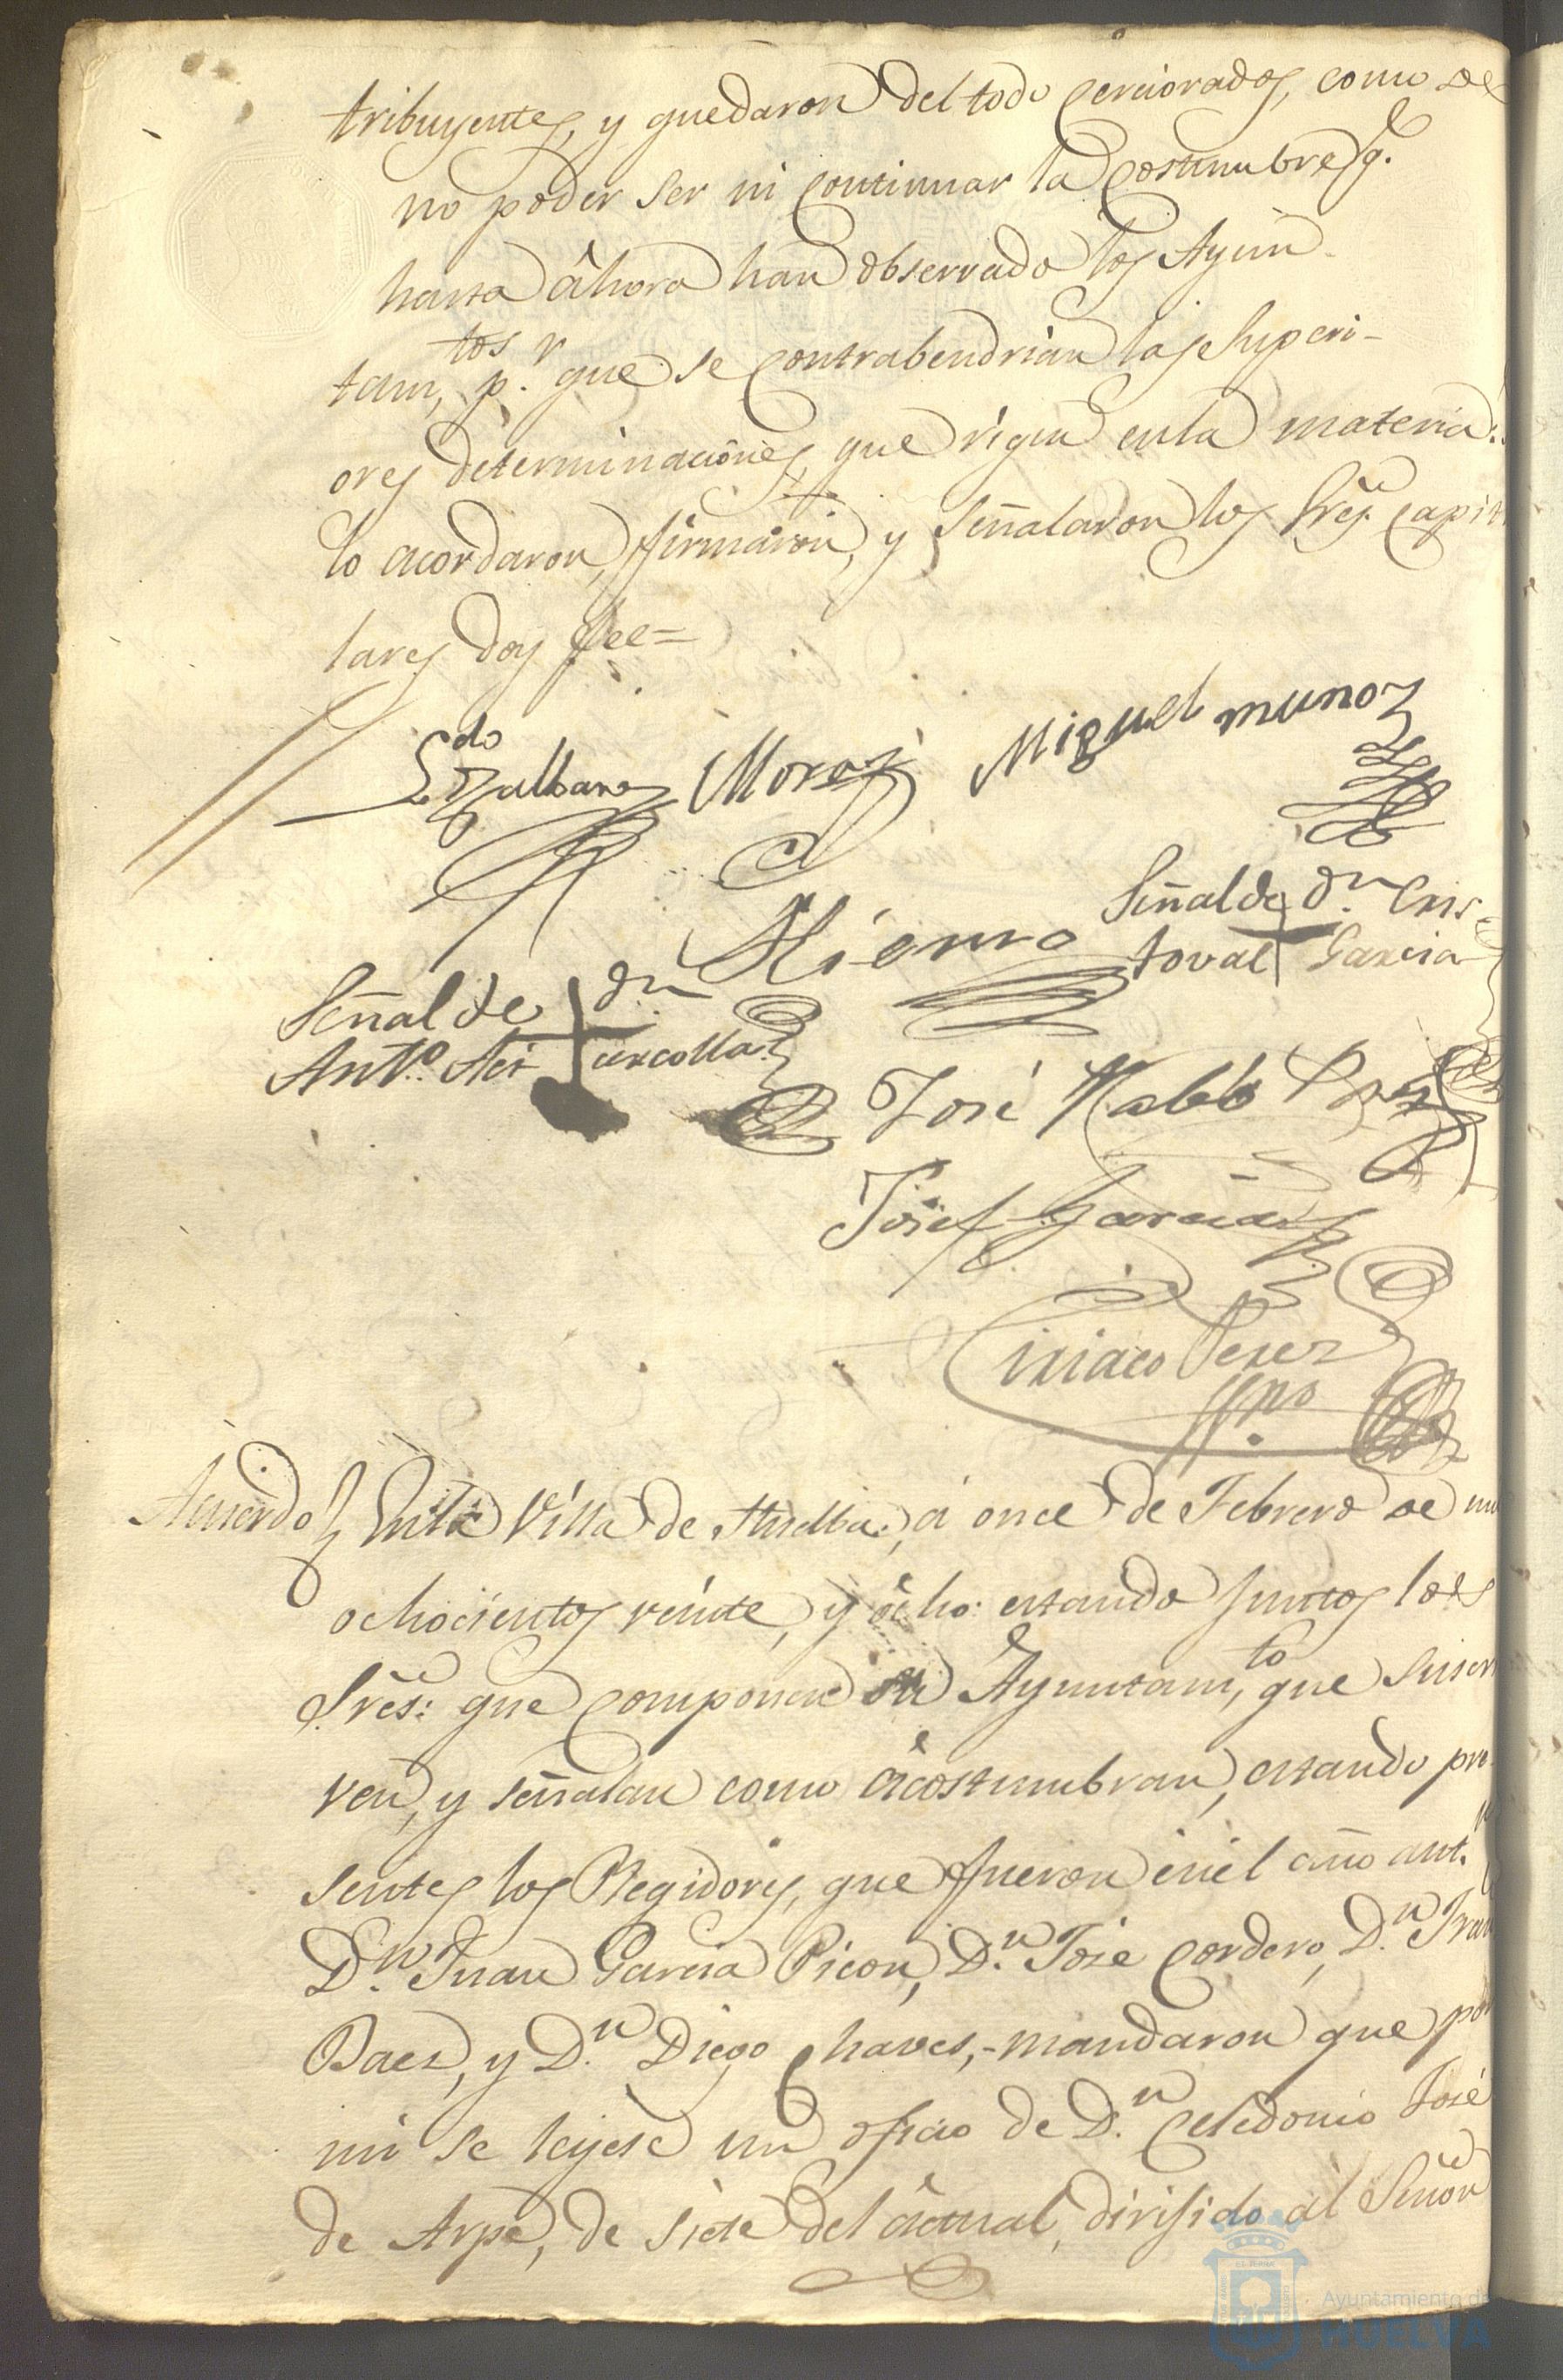 tribuyentes, y quedaron del todo cerciorados, como de
no poder ser ni continuar la costumbre q.e
hasta âhora han observado los Ayun-
tam,tos p.r que se contrabendrian las Superi-
ores determinaciónes, que rigen enla materia:
lo acordaron, firmaron, y señalaron los Sres. Capitu
lares doy fee=
Ldo Zalbane Mora Miguel munoz
Hierro Señal de dn Cris-
toval Garcia
Señal de dn
Anto.
José Pablo Perez
Josef Garcia
Ciriaco Perez
Acuerdo En la Villa de Huelba, á once de Febrero de mil
ochocientos veinte, y ôcho: estando juntos los
Sres: que componen su Ayuntam,to que suscri
ven, y señalan como âcostumbran, estando pre-
sentes los Regidores, que fueron enel año ant.r
D.n Juan Garcia Picon, D.n José Cordero, D.n Fran
Baes, y D.n Diego Chaves,- mandaron que por
mi se leyese un oficio de D.n Celedonio José
de Arpe, de siete del âctual, dirijido al Señor
Ayuntamiento de
HUELVA